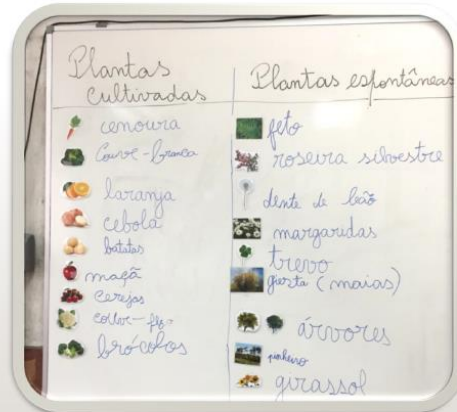 Plantas
cultivadas
cenoura
Couve-branca
laranja
cebola
batatas
maçã
cerejas
couve-flor
brócolos
Plantas espontâneas
feto
roseira silvestre
dente de leão
margaridas
trevo
giesta (maias)
árvores
pinheiro
girassol